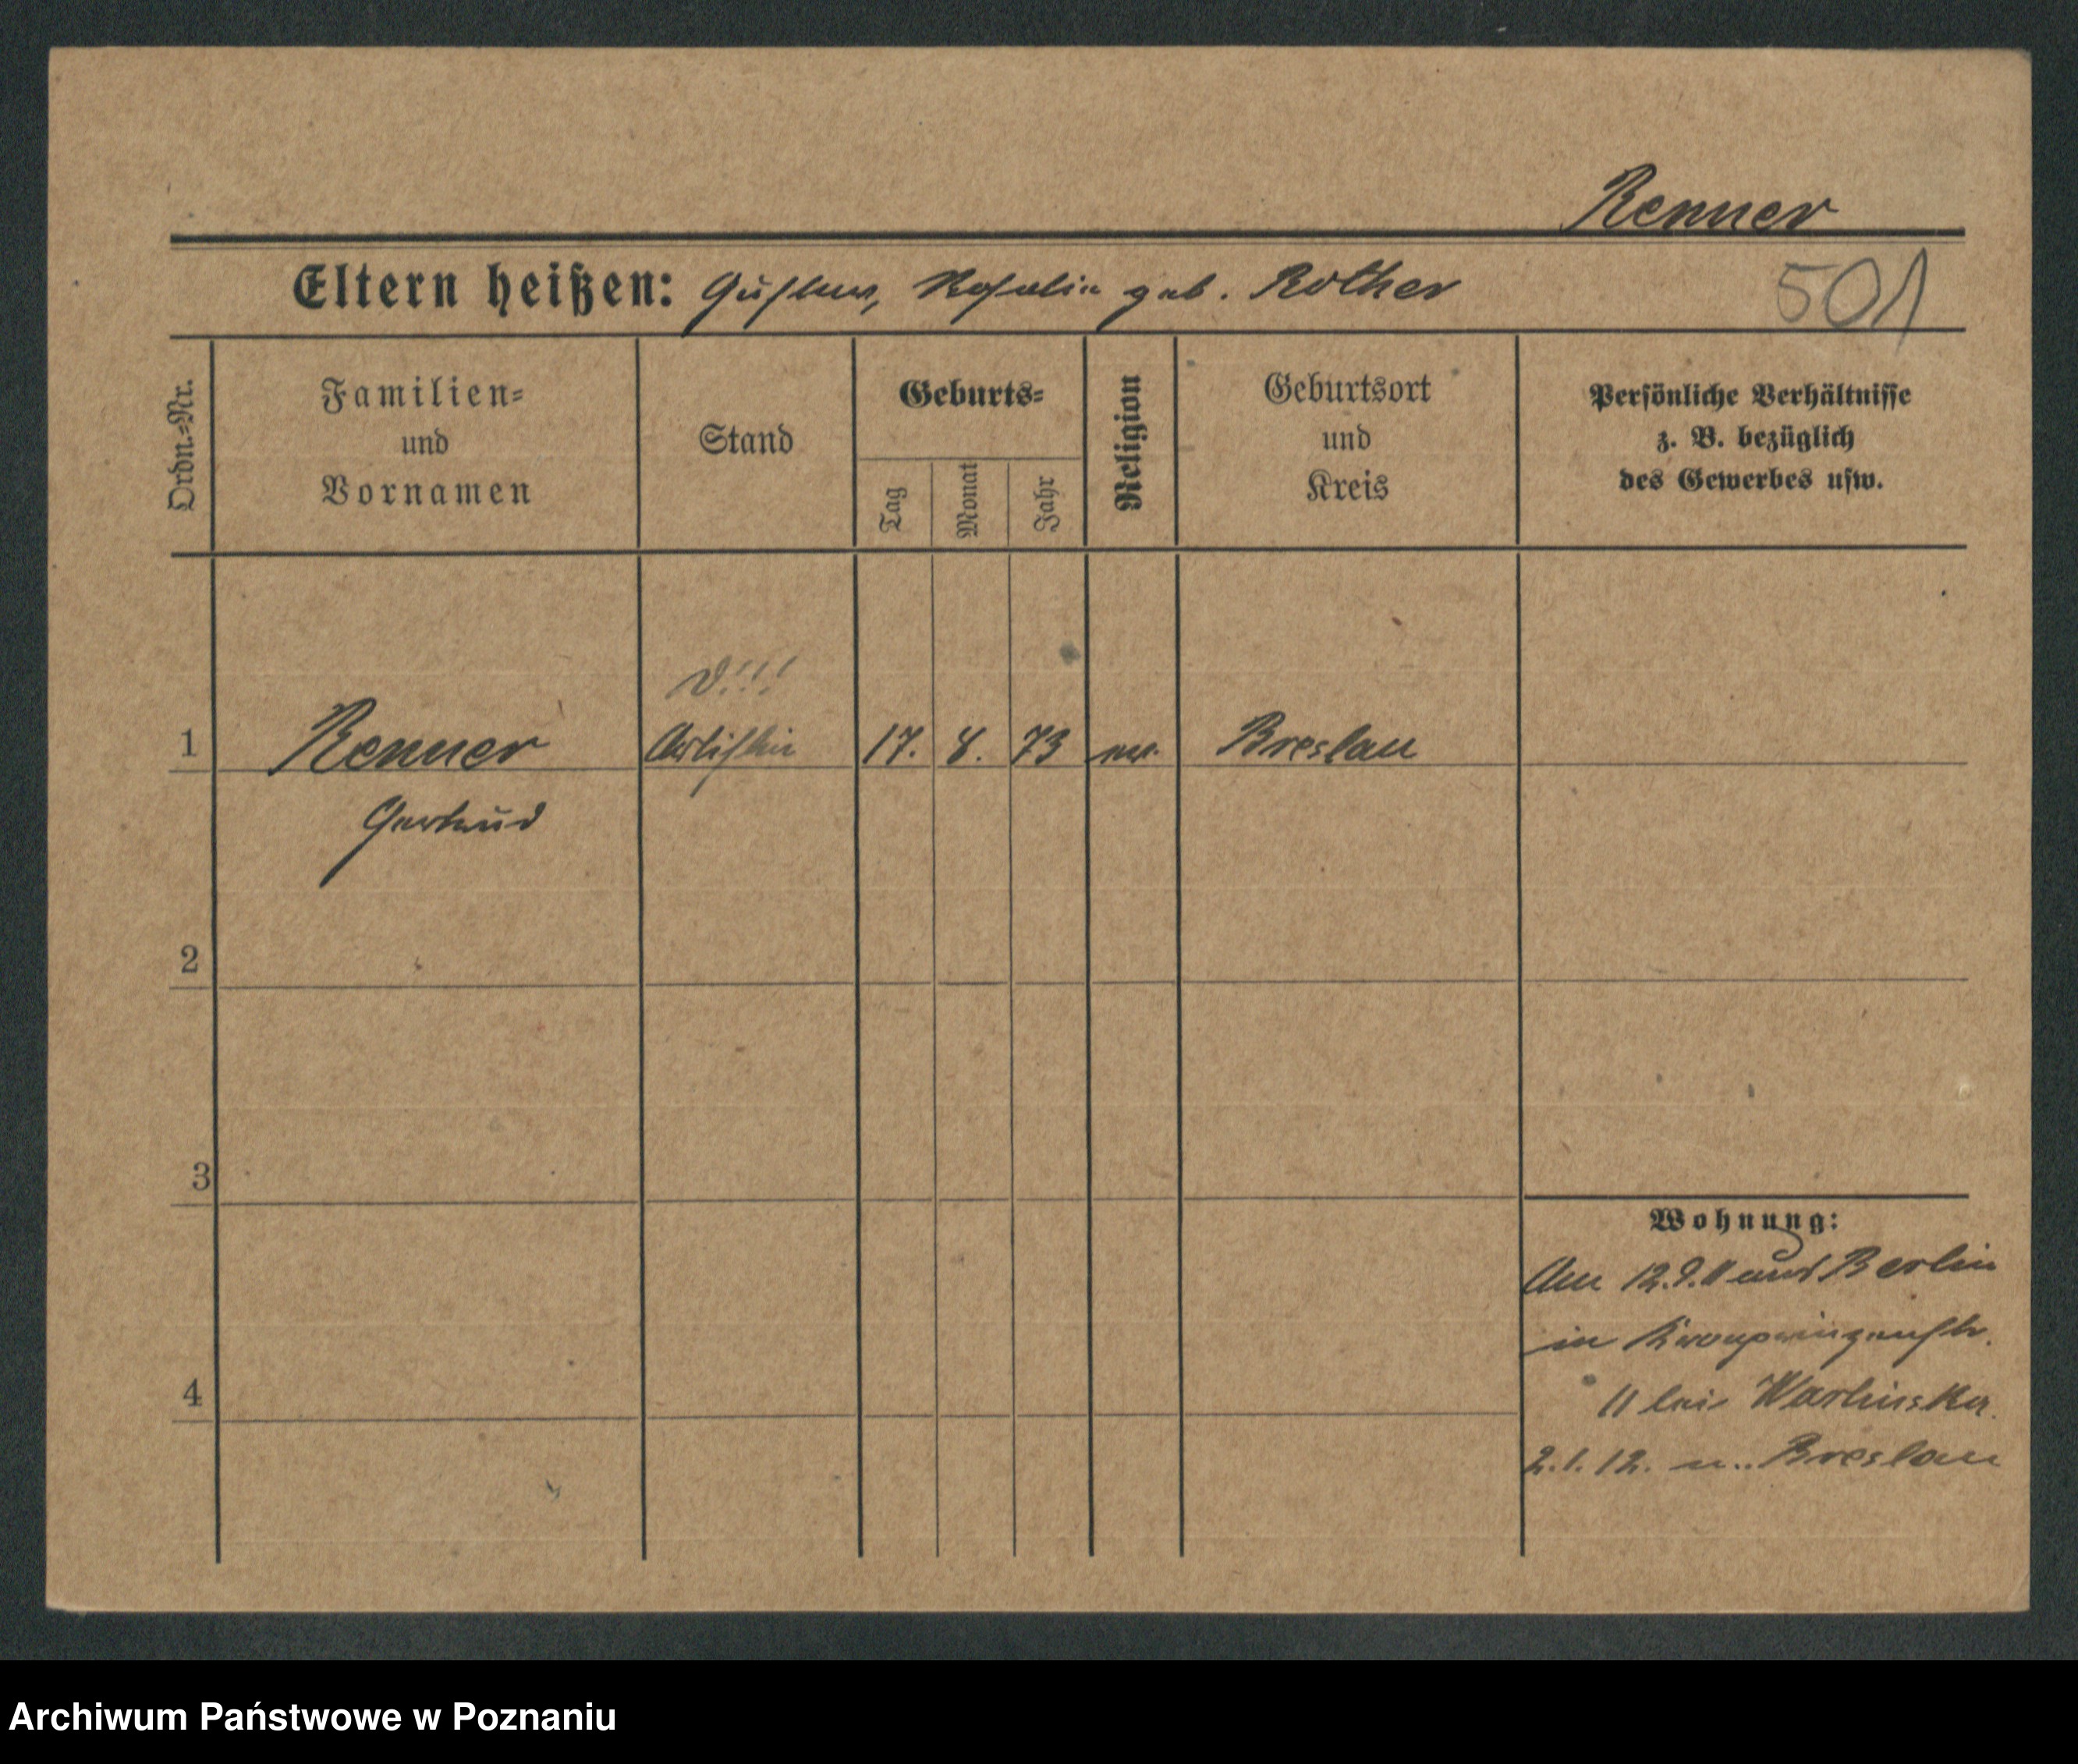 Renner
Eltern heißen: Gustav, Rosalie geb. Rother
501
Ordn.-Nr.
Familien-
und
Vornamen
Stand
Geburts-
Tag
Monat
Jahr
Religion
Geburtsort
und
Kreis
Persönliche Verhältnisse
z. B. bezüglich
des Gewerbes usw.
1 Renner Artistin 17. 8. 73 Breslau
Gertrud
2
3
4
Wohnung:
Am 12.9.11 aus Berlin
in Kronprinzenstr.
11 bei
2.1.12. n. Breslau
Archiwum Państwowe w Poznaniu